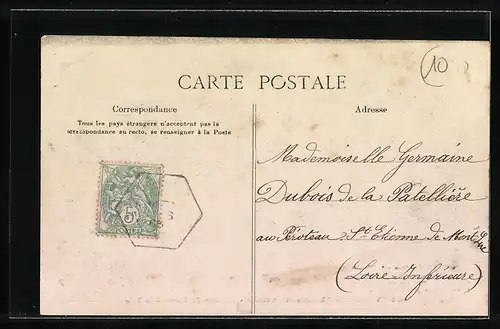 10
CARTE POSTALE
Correspondance
Tous les pays étrangers n'acceptent pas la
correspondance au recto, se renseigner à la Poste
Adresse
5c
POSTES
Mademoiselle Germaine
Dubois de la Patellière
au Péroteau St Etienne de Mont Luc
(Loire-Inférieure)